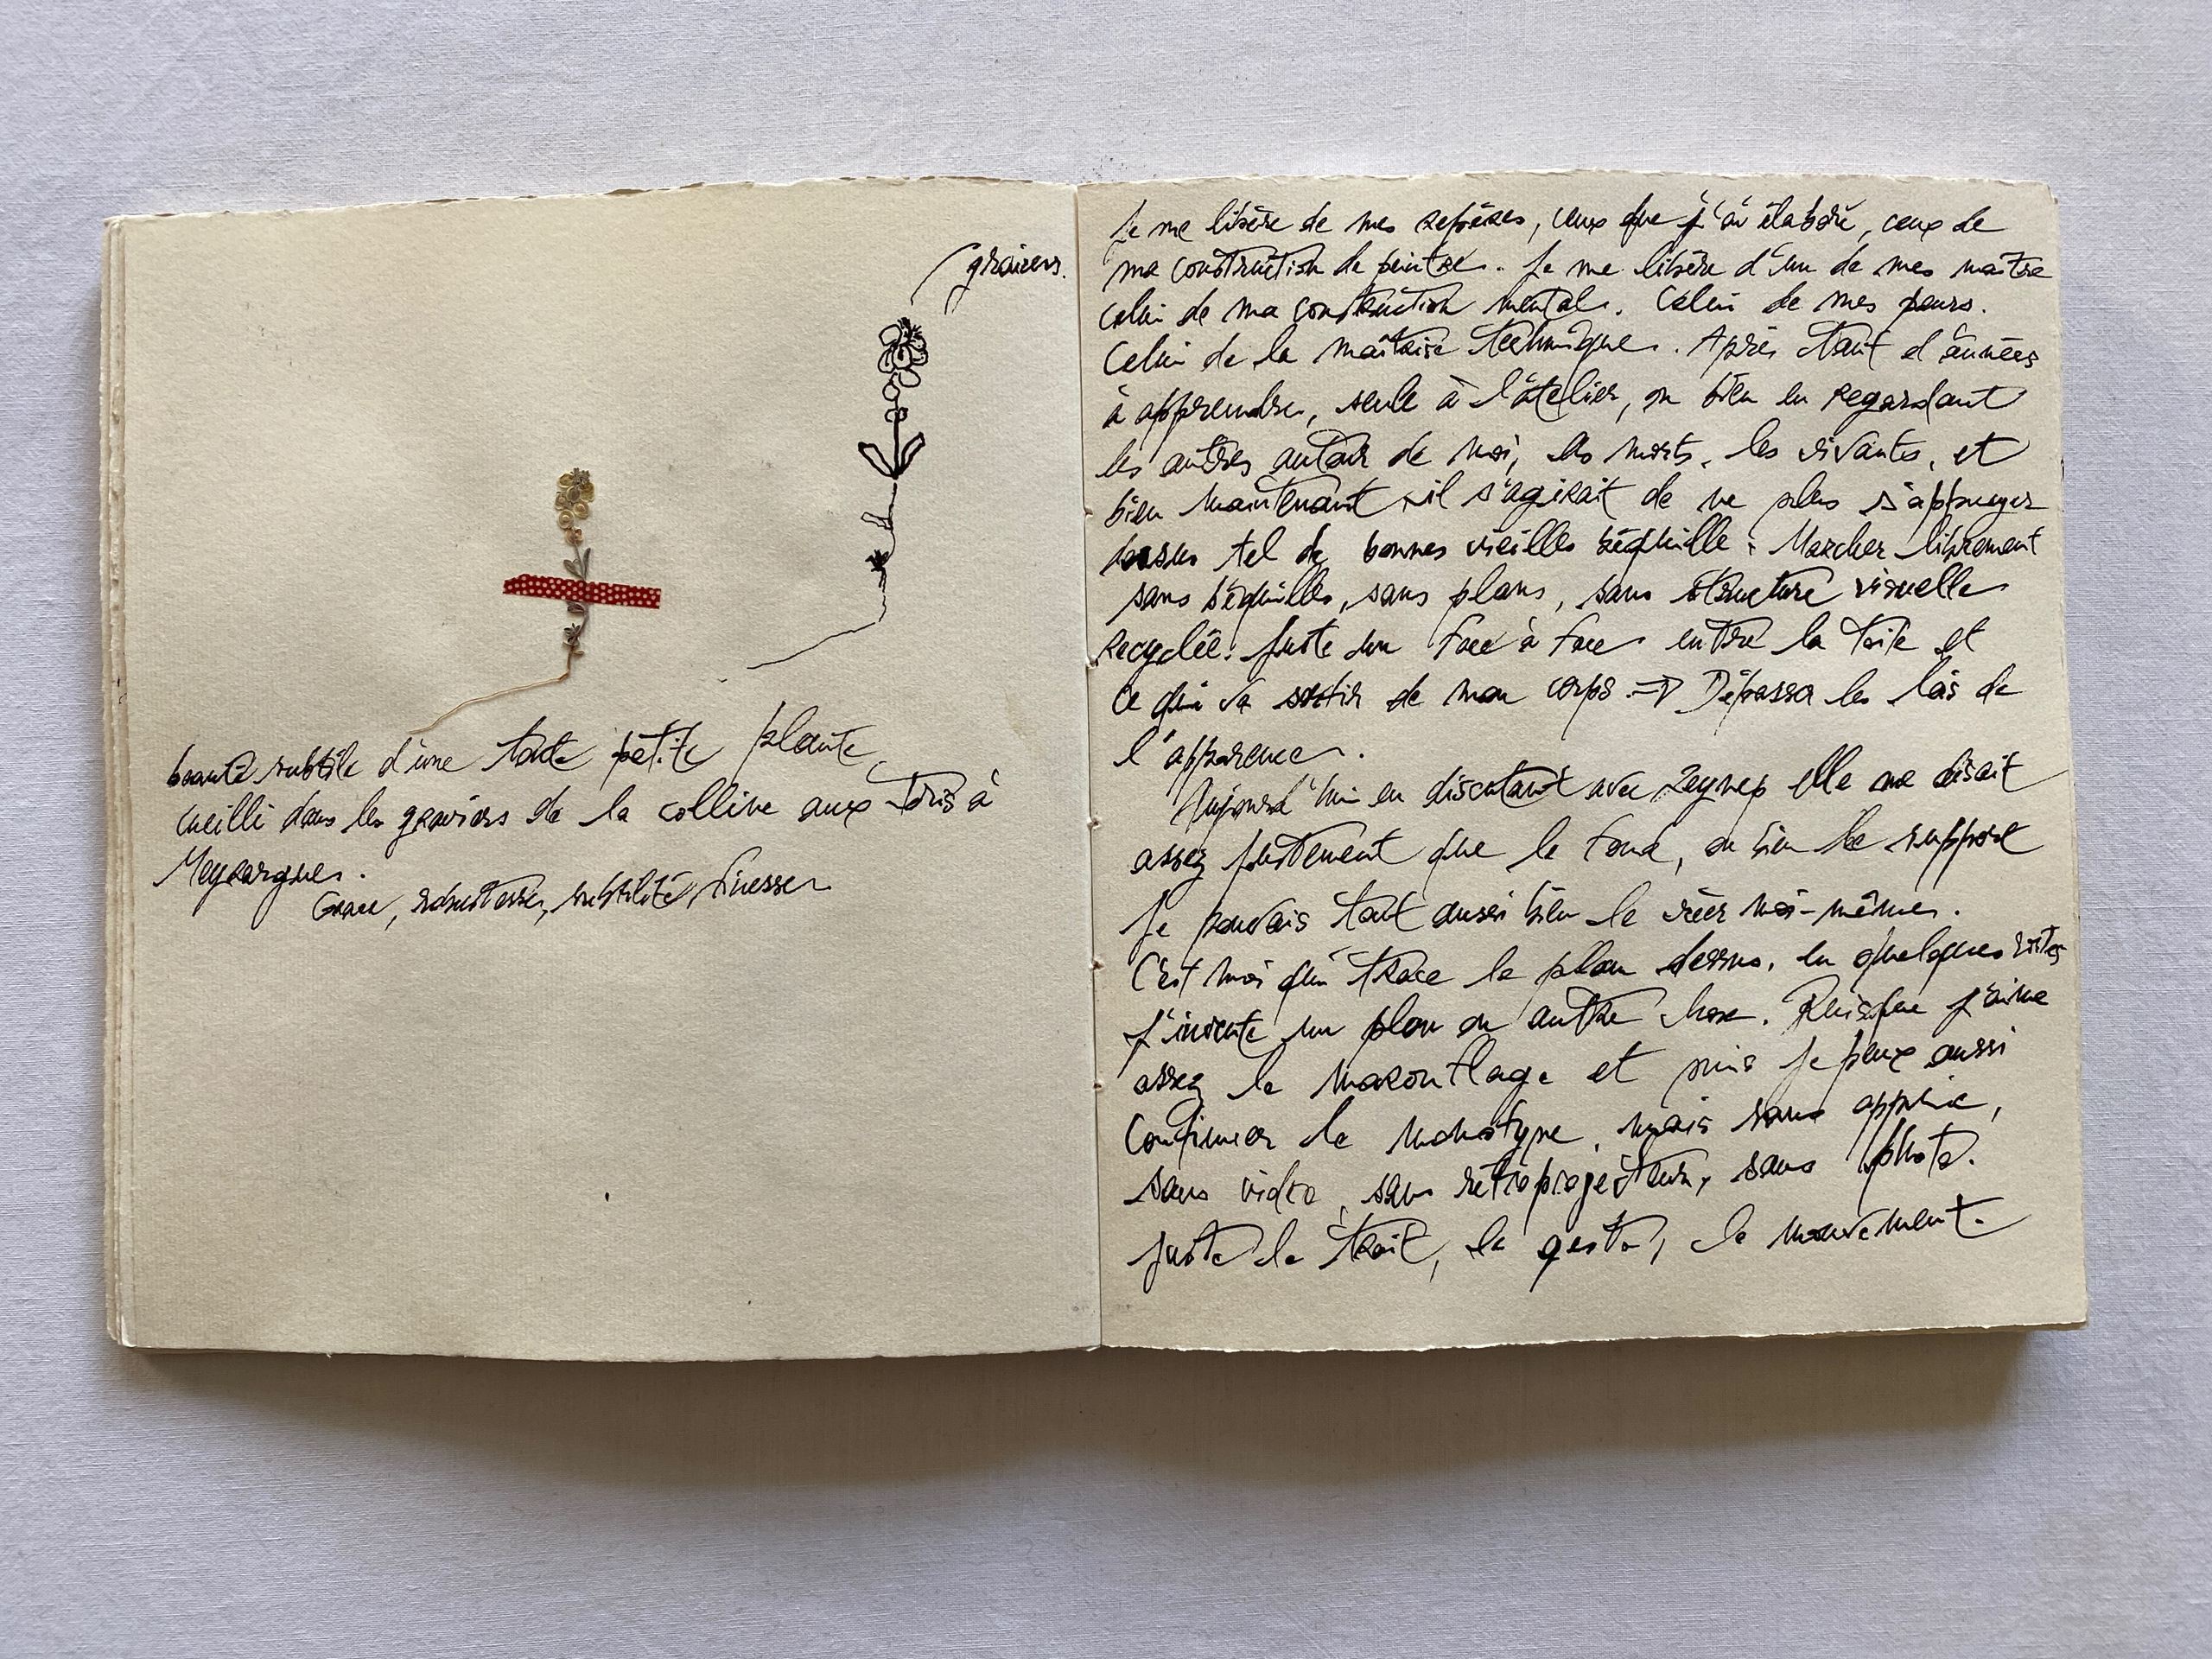 graines.
beauté subtile d'une toute petite plante
cueilli dans les graviers de la colline aux Iris à
Meyrargues.
Grace, robustesse, subtilité, finesse
Je me libère de mes repères, ceux que j'ai élaboré, ceux de
ma construction de peintre. Je me libère d'un de mes maitre
celui de ma construction mental. Celui de mes peurs.
Celui de la maîtrise technique. Après tant d'années
à apprendre, seule à l'atelier, ou bien en regardant
les autres autour de moi, les morts, les vivants, et
bien maintenant il s'agirait de ne plus s'appuyer
dessus tel de bonnes vieilles béquille. Marcher librement
sans béquilles, sans plans, sans structure visuelle
recyclée. Juste un face à face entre la toile et
ce qui va sortir de mon corps ⇒ Dépasser les lois de
l'apparence.
Aujourd'hui en discutant avec Zeynep elle me disait
assez justement que le fond, ou bien le support
je pouvais tout aussi bien le créer moi-même.
C'est moi qui trace le plan dessus, en quelques
j'invente un plan ou autre chose. Puisque j'aime
assez le marouflage et puis je peux aussi
continuer le monotype, mais sans
sans vidéo, sans rétroprojecteur, sans photo.
juste le trait, le geste, le mouvement.